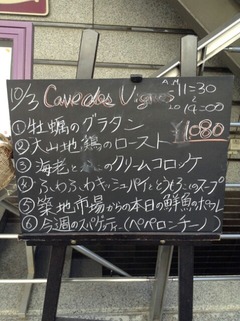 10/3 Cave des Vignes A.M. 11=30
L.O 14=00
¥1080
①牡蠣のグラタン
②大山地鶏のロースト
③海老と のクリームコロッケ
④ふわふわキッシュパイととうもろこしのスープ
⑤築地市場からの本日の鮮魚のポワレ
⑥今週のスパゲティー(ペペロンチーノ)